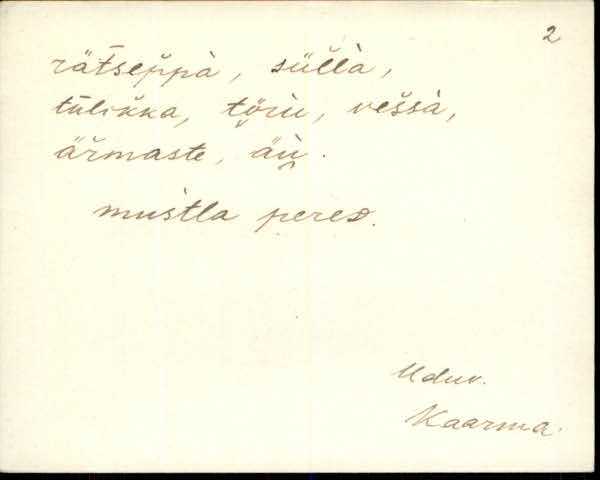 2
rätsep̆pà, sül̆là,
tūlik̆ka, tö̬rìù, ves̆sà,
är̆maste, äìù.
mustla peres.
Uduv.
Kaarma.